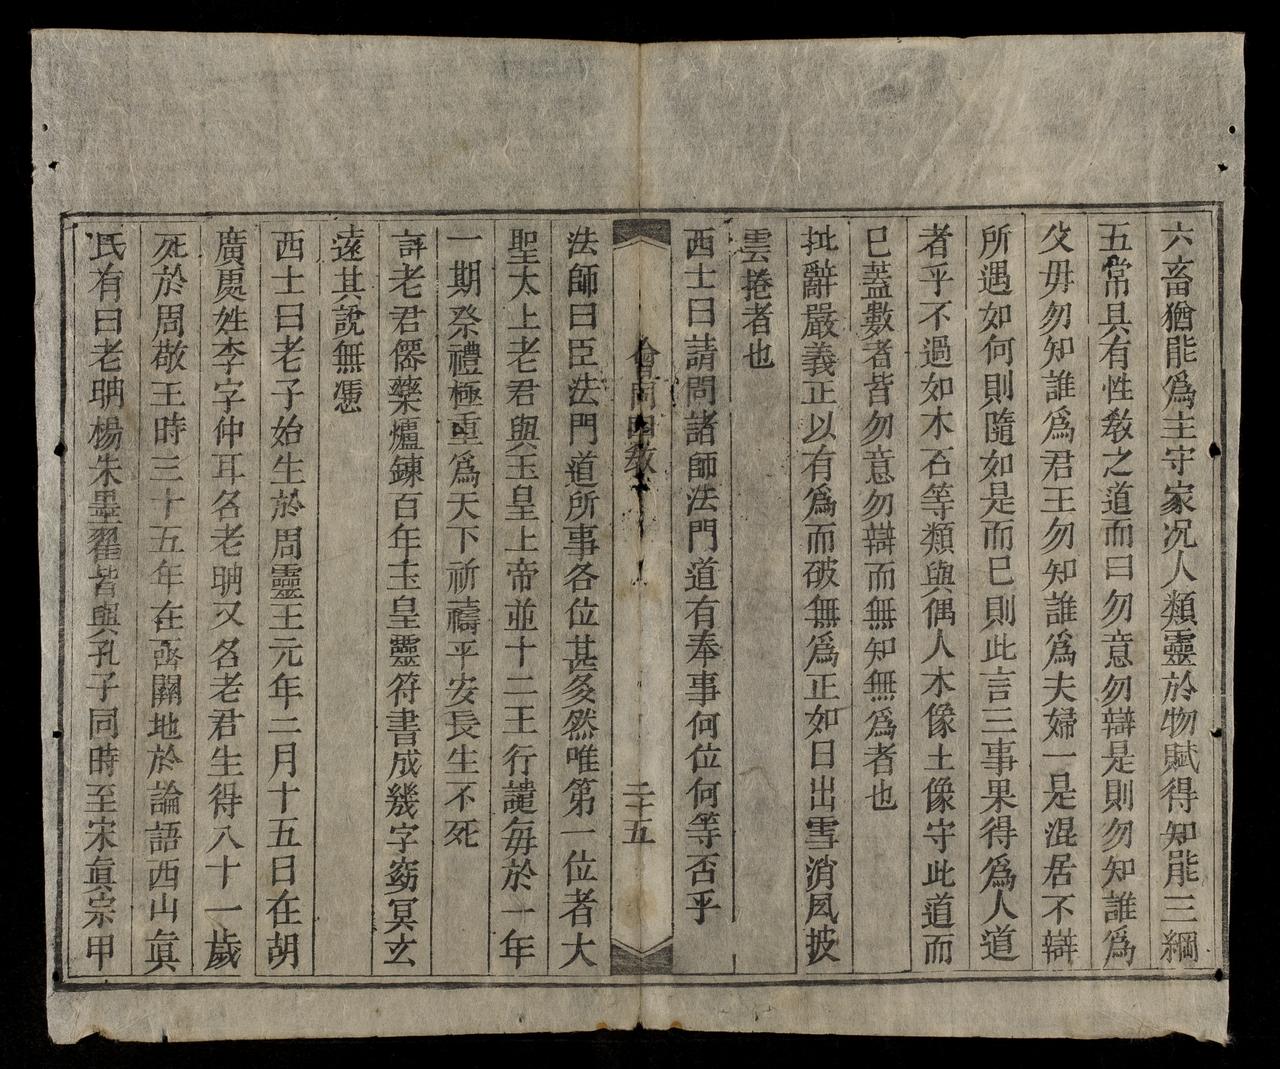 六畜猶能爲主守家况人類靈於物賦得知能三綱
五常具有性敎之道而曰勿意勿辯是則勿知誰爲
父毋勿知誰爲君王勿知誰爲夫婦一是混居不辯
所遇如何則隨如是而已則此言三事果得爲人道
者乎不過如木石等類與偶人木像土像守此道而
已蓋數者皆勿意勿辯而無知無爲者也
批辭嚴義正以有爲而破無爲正如日出雪消風披
雲捲者也
西士曰請問諸師法門道有奉事何位何等否乎
會同四敎
二十五
法師曰臣法門道所事各位甚多然唯第一位者大
聖太上老君與玉皇上帝並十二王行譴每於一年
一期祭禮極重爲天下祈禱平安長生不死
評老君僊藥爐鍊百年玉皇靈符書成幾字窈冥玄
遠其說無憑
西士曰老子始生於周靈王元年二月十五日在胡
廣處姓李字仲耳各老聃又各老君生得八十一歲
死於周敬王時三十五年在齊關地於論語西山眞
氏有曰老聃楊朱墨翟皆與孔子同時至宋眞宗甲